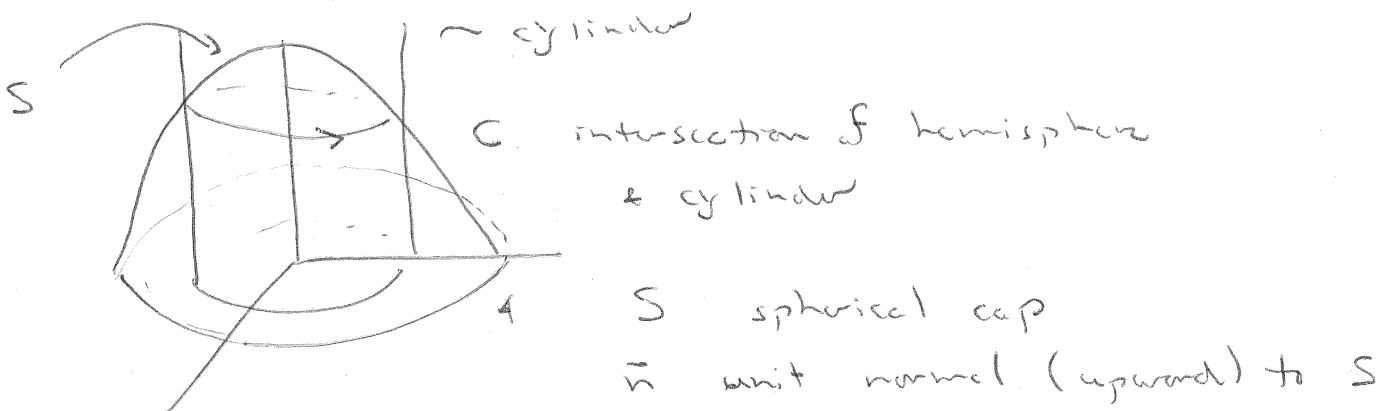 ~ cylinder
S
C intersection of hemisphere
& cylinder
4
S spherical cap
n̄ unit normal (upward) to S